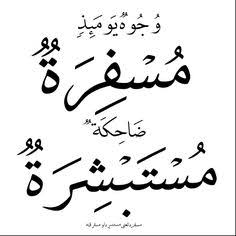 وُجُوهٌ يَوْمَئِذٍ
مُسْفِرَةٌ
ضَاحِكَةٌ
مُسْتَبْشِرَةٌ